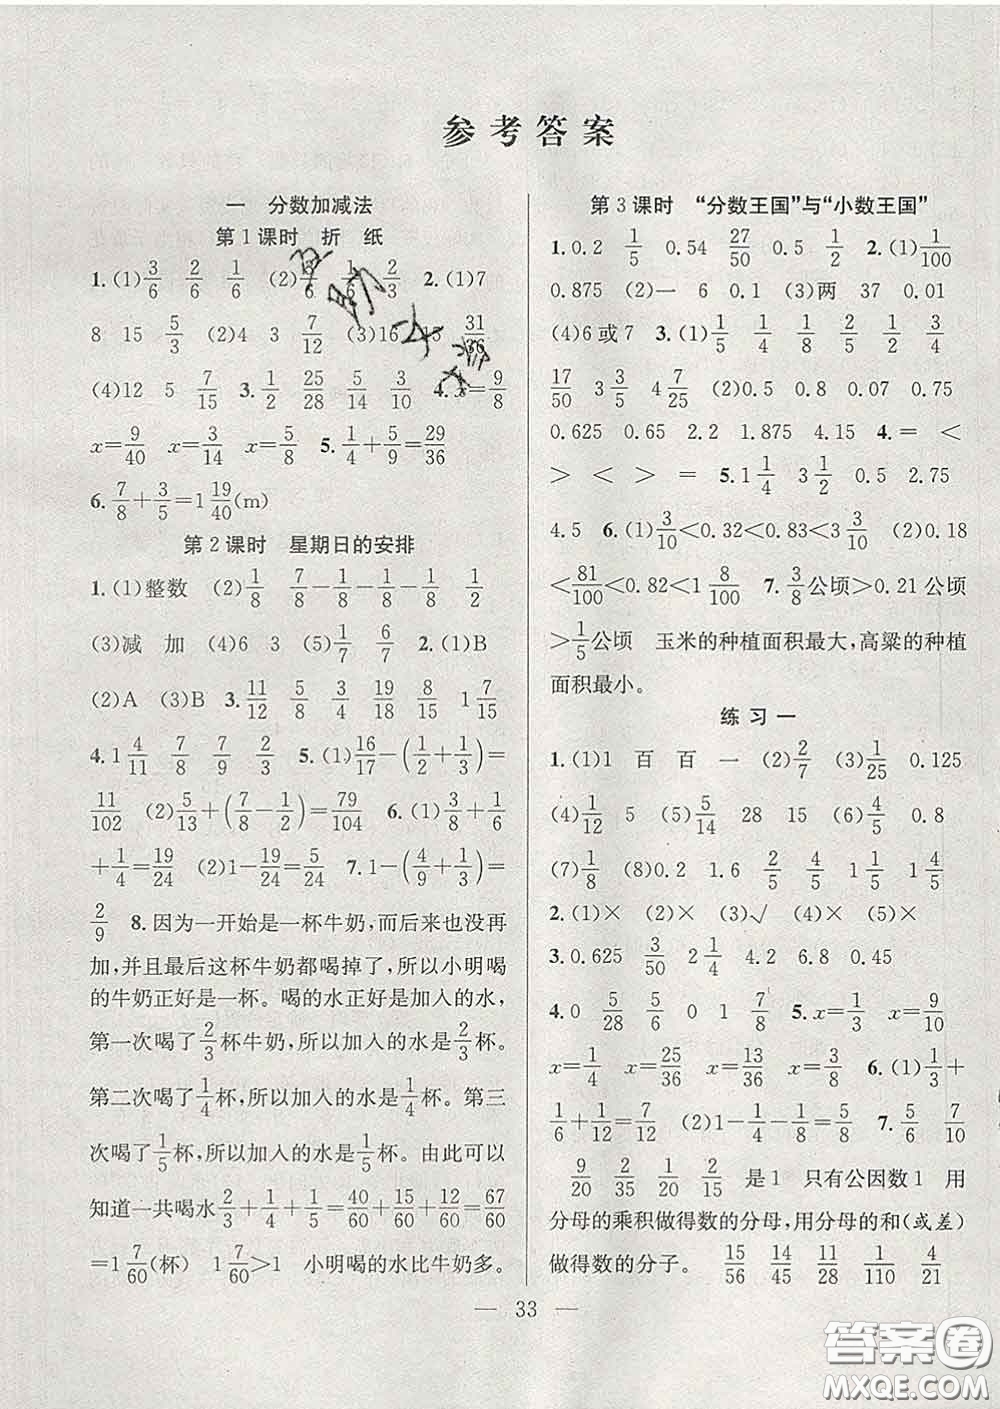 参考答案
一 分数加减法
第1课时 折 纸
1.(1)3/6 2/6 1/6 (2) /6 1/6 2/3 2.(1)7
8 15 5/3 (2)4 3 7/12 (3)16 15 31/36
(4)12 5 7/15 3.1/2 25/28 5/14 3/10 4.x=9/8
x=9/40 x=3/14 x=5/8 5.1/4+5/9=29/36
6.7/8+3/5=1 19/40(m)
第2课时 星期日的安排
1.(1)整数 (2)1/8 7/8-1/8-1/8-1/8 1/2
(3)减 加 (4)6 3 (5)1/7 6/7 2.(1)B
(2)A (3)B 3.11/12 5/8 3/4 18/18 8/15 1 7/15
4.1 4/11 7/8 7/9 2/3 5.(1)16/17-(1/2+1/3)=
11/102 (2)5/13+(7/8-1/2)=79/104 6.(1)3/8+1/6
+1/4=19/24 (2)1-19/24=5/24 7.1-(4/9+1/3)=
2/9 8.因为一开始是一杯牛奶,而后来也没再
加,并且最后这杯牛奶都喝掉了,所以小明喝
的牛奶正好是一杯。喝的水正好是加入的水,
第一次喝了2/3杯牛奶,所以加入的水是2/3杯。
第二次喝了1/4杯,所以加入的水是1/4杯。第三
次喝了1/5杯,所以加入的水是1/5杯。由此可以
知道一共喝水2/3+1/4+1/5=40/60+15/60+12/60=67/60
=1 7/60(杯) 1 7/60>1 小明喝的水比牛奶多。
第3课时 “分数王国”与“小数王国”
1.0.2 1/5 0.54 27/50 0.5 1/2 2.(1)1/100
0.875 (2)一 6 0.1 (3)两 37 0.01
(4)6或7 3.(1)1/5 1/4 1/8 1/2 3/4
17/50 3 3/5 4 7/25 (2)0.8 0.07 0.75
0.625 0.65 2.2 1.875 4.15 4.= <
> < > = 5.1 1/4 3 1/2 0.5 2.75
4.5 6.(1)3/10<0.32<0.83<3 3/10 (2)0.18
<81/100<0.82<1 8/100 7.3/8公顷>0.21公顷
>1/5公顷 玉米的种植面积最大,高粱的种植
面积最小。
练习一
1.(1)1 百 百 一 (2)2/7 (3)1/25 0.125
(4)1/12 5 (5)5/14 28 15 (6)4/5 0.8
(7)1/8 (8)0.2 1.6 2/5 4/5 1 1/5 1 4/5
2.(1)× (2)× (3)√ (4)× (5)×
3.0.625 3/50 2 1/4 0.8 0.75 1.5
4.0 5/28 5/6 0 1 7/8 5.x=1/3 x=9/10
x=1/4 x=25/36 x=13/36 x=3/4 6.(1)1/3+
1/6+1/12=7/12 (2)1-1/4-1/8=5/8 7.5/6 7/10
9/20 2/35 1/20 2/15 是1 只有公因数1 用
分母的乘积做得数的分母,用分母的和(或差)
做得数的分子。 15/56 14/45 11/28 1/110 4/21
— 33 —
答案圈
MXQE.COM